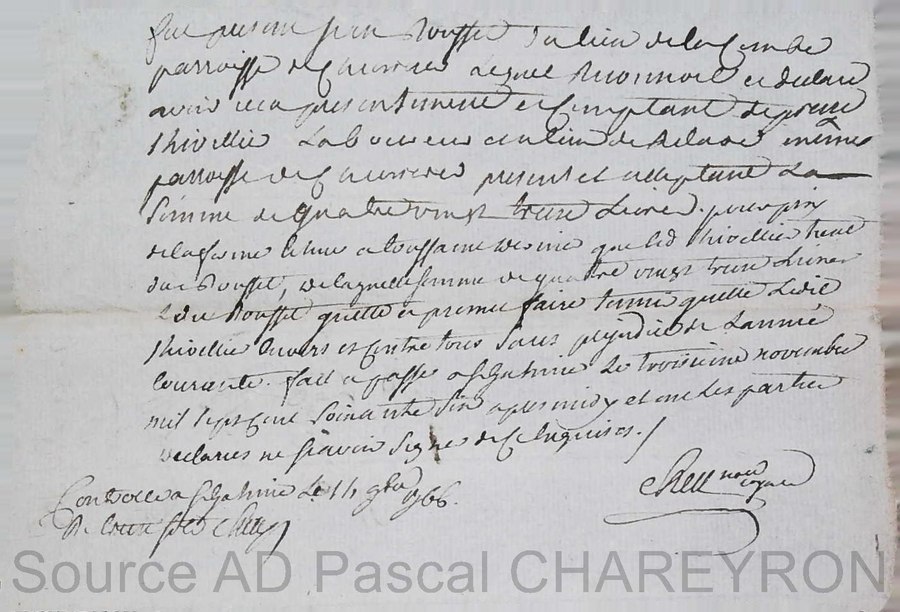 fut présent jean Rousset du lieu de la Combe
parroisse de lequel reconnoit et declare
avoir recu presentement et Comptant de pierre
Thivellié Laboureur du lieu de même
parroisse de present et acceptant La
Somme de quatre vingt treise Livres pour prix
de la ferme echue a toussaint dernier que led Thivellier tient
du d Rousset, de laquelle somme de quatre vingt treise Livres
Led Rousset quitte et promet faire tenir quitte Ledit
Thivellie Envers et Contre tous sans prejudice de Lannée
Courante. fait et passé a Le troisieme novembre
mil sept cent soixante six apres midy et ont Les parties
declarées ne scavoir signer de ce Enquises./
notre royal
Controllé a Le 14 9bre 1766.
R.
Source AD Pascal CHAREYRON